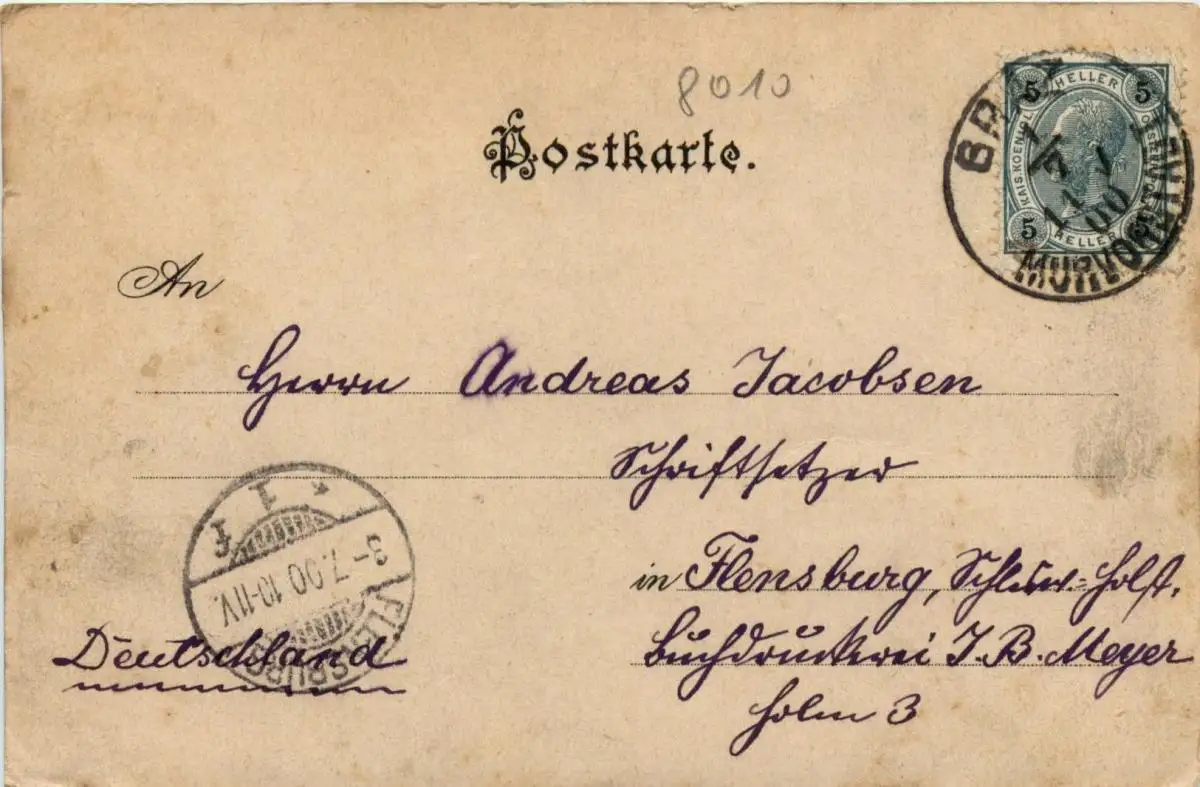 8010
Postkarte.
5 HELLER 5
KAIS. KOENIGL.
5 HELLER 5
1/7
11 V
00
MURVORSTADT
An
Herrn Andreas Jacobsen
Schriftsetzer
in Flensburg, Schlesw.-Holst.
Buchdruckerei J. B. Meyer
Holm 3
3-7.00 10-11 V.
FLENSBURG
Deutschland